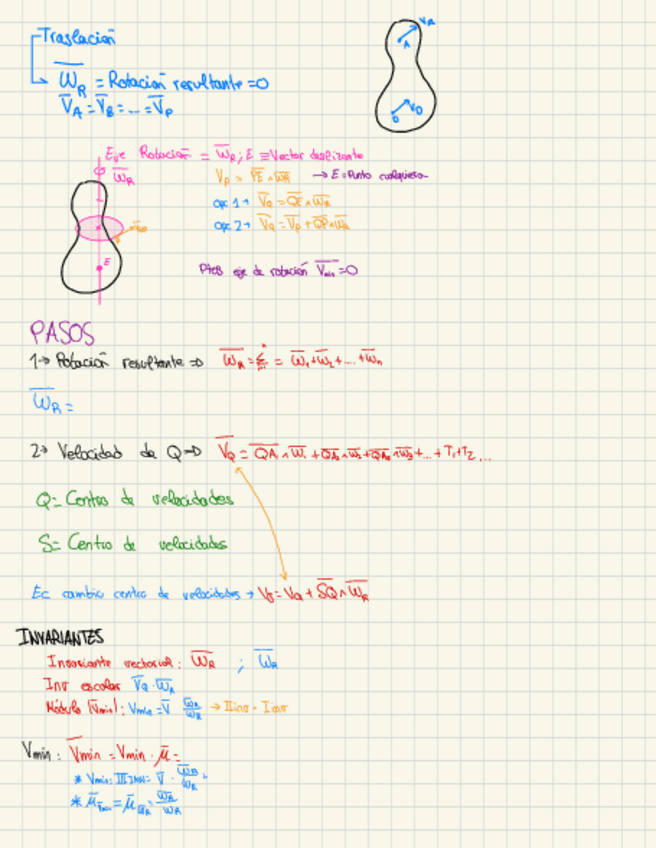 Traslación
V_A
A
W̅_R = Rotación resultante = 0
V̅_A = V̅_B = ... = V̅_P
V_D
Eje Rotación = W̅_R; E ≡ Vector deslizante
W̅_R
V_P = P̅E̅ ∧ W̅_R → E = Punto cualquiera
opc 1 → V̅_Q = Q̅E̅ ∧ W̅_R
opc 2 → V̅_Q = V̅_P + Q̅P̅ ∧ W̅_R
E
Ptos eje de rotación V̅_min = 0
PASOS
1 → Rotación resultante ⇒ W̅_R = Σ = W̅_1 + W̅_2 + ... + W̅_n
W̅_R =
2 → Velocidad de Q ⇒ V̅_Q = Q̅A̅_1 ∧ W̅_1 + Q̅A̅_2 ∧ W̅_2 + Q̅A̅_3 ∧ W̅_3 + ... + T_1 + T_2 ...
Q = Centro de velocidades
S = Centro de velocidades
Ec cambio centro de velocidades → V_S = V_Q + S̅Q̅ ∧ W̅_R
INVARIANTES
Invariante vectorial: W̅_R ; W̅_R
Inv escalar V̅_Q · W̅_R
Módulo |V̅min|: Vmin = V̅ W̅_R/W_R → IIinv - Iinv
Vmin: V̅min = Vmin · μ̅ =
* Vmin: III INV = V̅ · W̅_R/W_R
* μ̅_Vmin = μ̅_WR = W̅_R/W_R